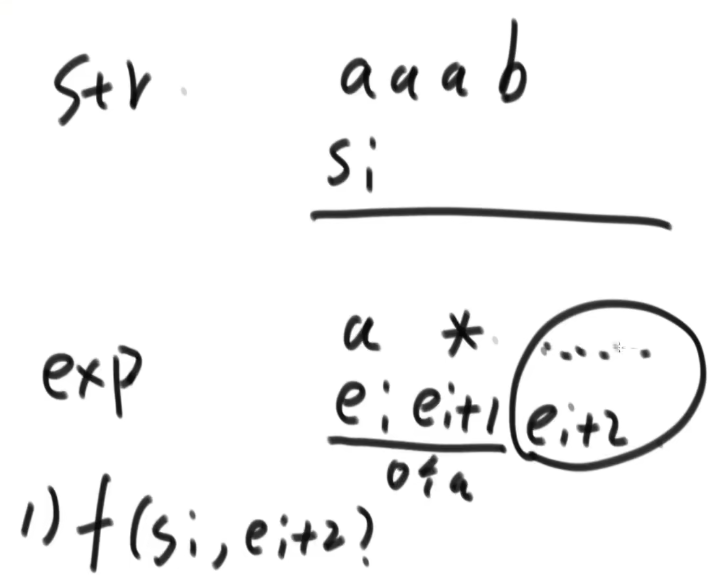 str aaab
si
exp a * .....
ei ei+1 ei+2
0个a
1) f(si, ei+2)